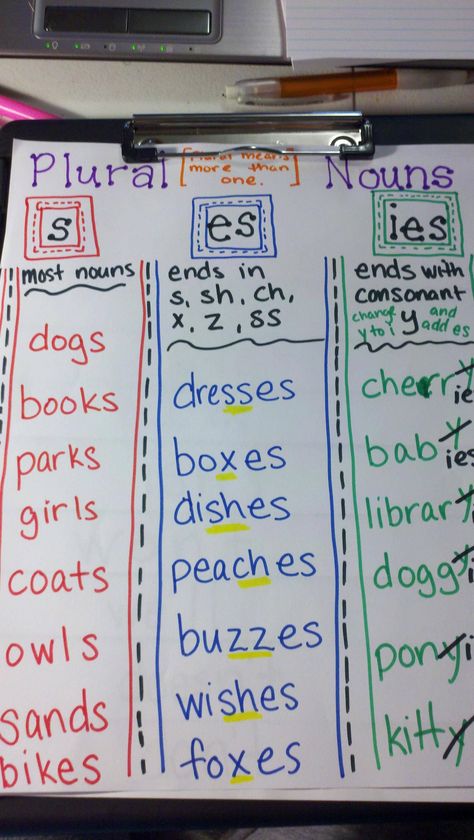 Plural [Plural means more than one.] Nouns
s
most nouns
dogs
books
parks
girls
coats
owls
sands
bikes
es
ends in
s, sh, ch,
x, z, ss
dresses
boxes
dishes
peaches
buzzes
wishes
foxes
ies
ends with
consonant
change y to i y and add es
cherry ie
baby ies
library
doggy i
pony i
kitty